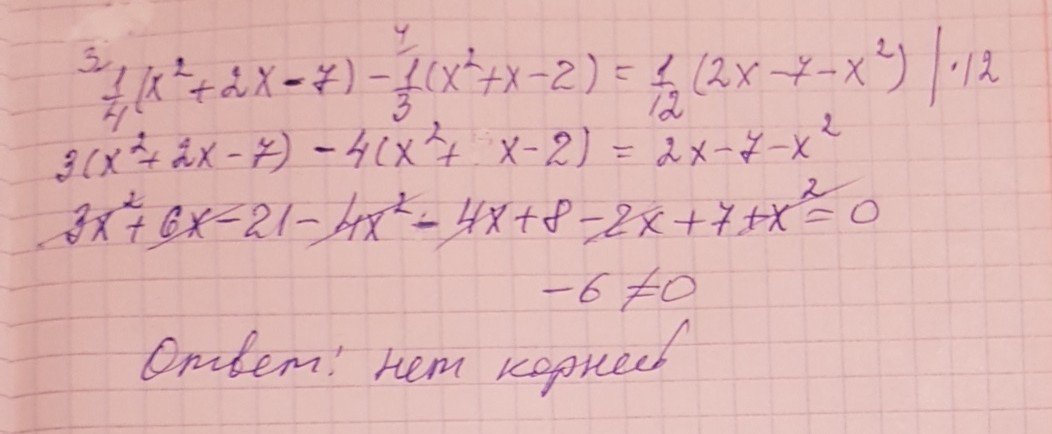 3 1/4(x²+2x-7) - 4 1/3(x²+x-2) = 1/12(2x-7-x²) |·12
3(x²+2x-7) - 4(x²+ x-2) = 2x-7-x²
3x²+6x-21-4x²-4x+8-2x+7+x²=0
-6≠0
Ответ: нет корней